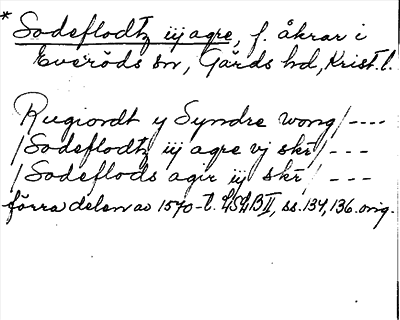 * Sodeflodtz iij agre, f. åkrar i
Everöds sn, Gärds hd, Krist. l.
Rugiordt y Syndre wong/----
/Sodeflodtz iij agre vj skr/ ---
/Sodeflods agir iij skr/ ---
förra delen av 1570-t. LSLB II, ss. 134, 136. orig.